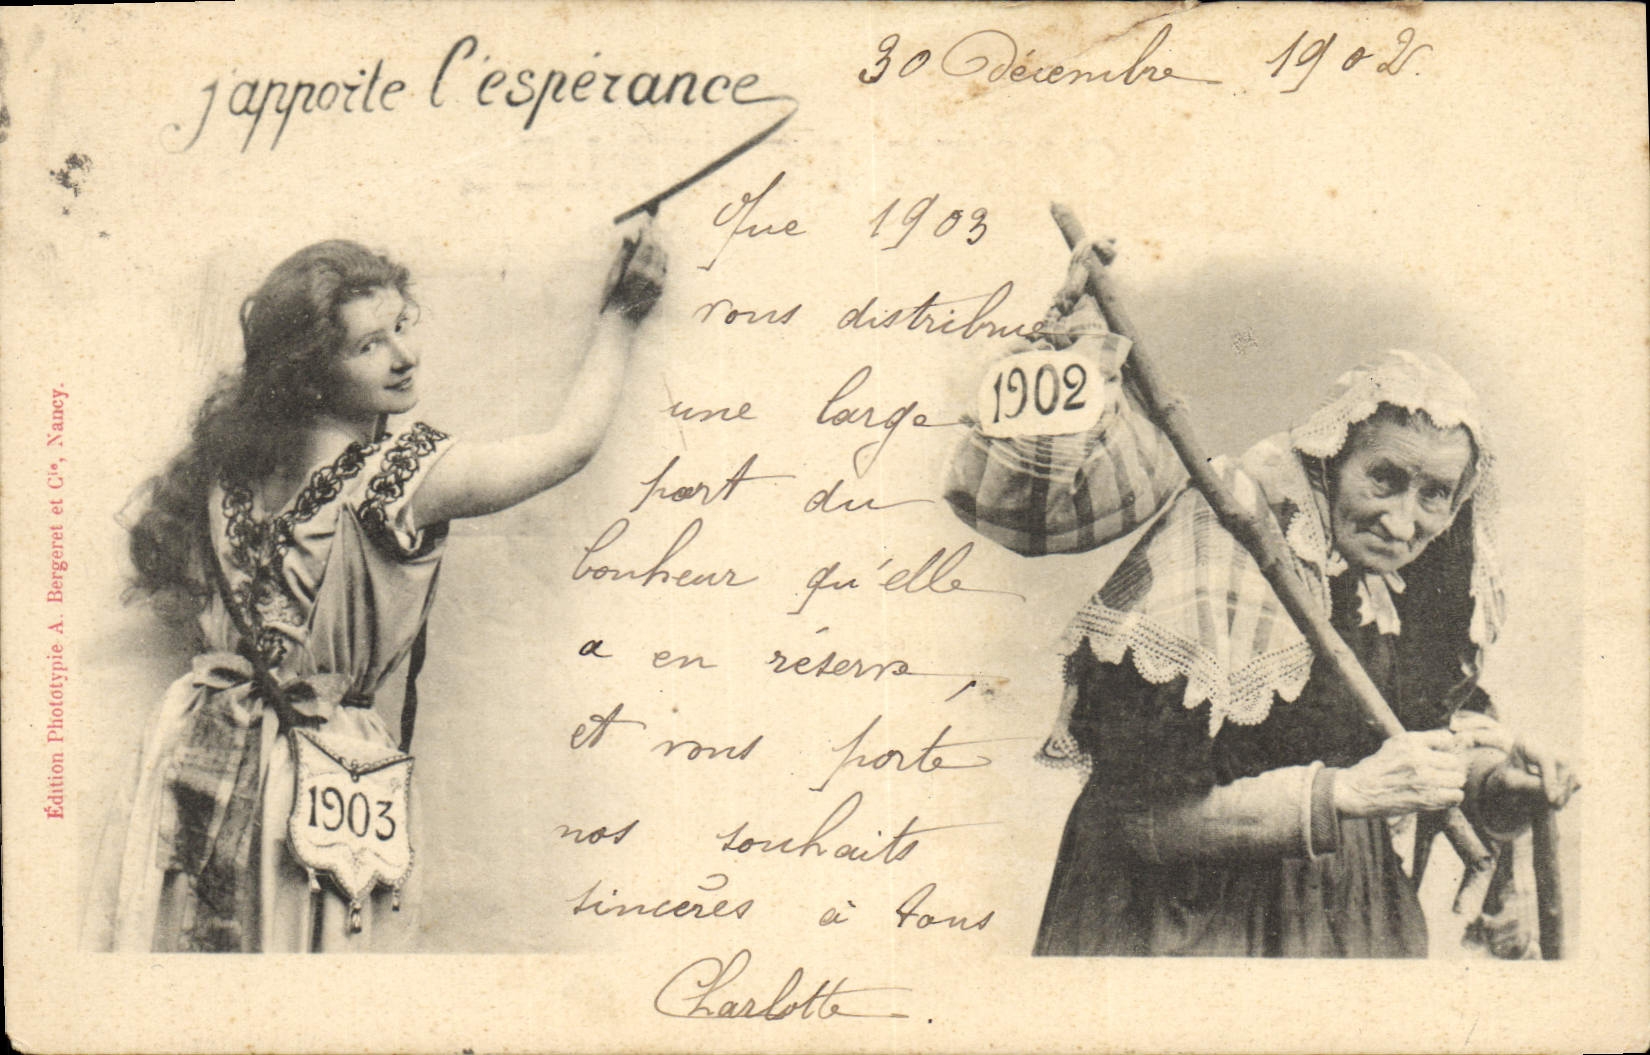 j'apporte l'espérance
30 Décembre 1902.
Que 1903
vous distribue
une large
part du
bonheur qu'elle
a en réserve,
et vous porte
nos souhaits
sincères à tous
Charlotte.
1902
1903
Édition Phototypie A. Bergeret et Cie, Nancy.